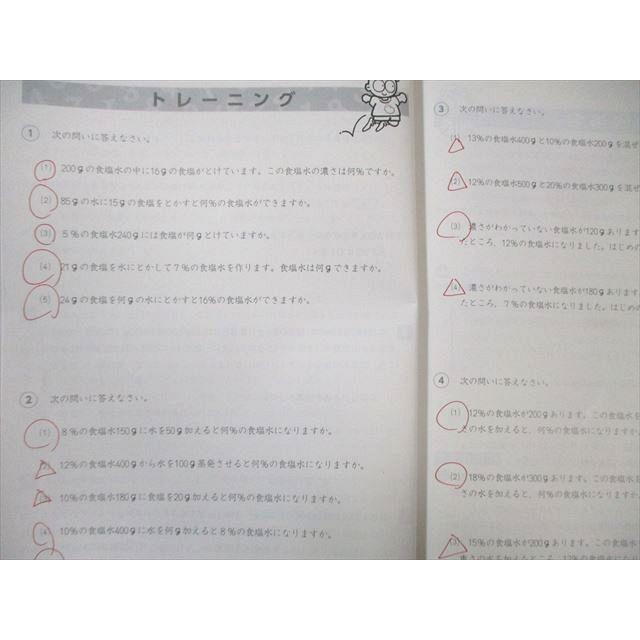 トレーニング
1 次の問いに答えなさい。
(1) 200gの食塩水の中に16gの食塩がとけています。この食塩水の濃さは何%ですか。
(2) 85gの水に15gの食塩をとかすと何%の食塩水ができますか。
(3) 5%の食塩水240gには食塩が何gとけていますか。
(4) 21gの食塩を水にとかして7%の食塩水を作ります。食塩水は何gできますか。
(5) 24gの食塩を何gの水にとかすと16%の食塩水ができますか。
2 次の問いに答えなさい。
(1) 8%の食塩水150gに水を50g加えると何%の食塩水になりますか。
(2) 12%の食塩水400gから水を100g蒸発させると何%の食塩水になりますか。
(3) 10%の食塩水180gに食塩を20g加えると何%の食塩水になりますか。
(4) 10%の食塩水400gに水を何g加えると8%の食塩水になりますか。
3 次の問いに答えなさい。
(1) 13%の食塩水400gと10%の食塩水200gを混ぜ
(2) 12%の食塩水500gと20%の食塩水300gを混ぜ
(3) 濃さがわかっていない食塩水が120gあります
たところ、12%の食塩水になりました。はじめの
(4) 濃さがわかっていない食塩水が180gあります
たところ、7%の食塩水になりました。はじめの
4 次の問いに答えなさい。
(1) 12%の食塩水が200gあります。この食塩水を
さの水を加えると、何%の食塩水になりますか
(2) 18%の食塩水が300gあります。この食塩水
さの水を加えると、何%の食塩水になりますか
(3) 15%の食塩水が200gあります。この食塩水
重さの水を加えたところ、12%の食塩水になり